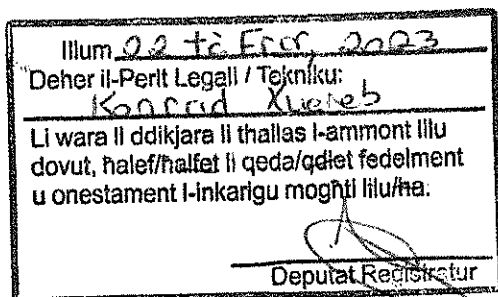 Illum 22 ta' Frar, 2023
Deher il-Perit Legali / Tekniku:
Konrad Xuereb
Li wara li ddikjara li thallas l-ammont lilu
dovut, ħalef/ħalfet li qeda/qdiet fedelment
u onestament l-inkarigu mogħti lilu/ha.
Deputat Registratur